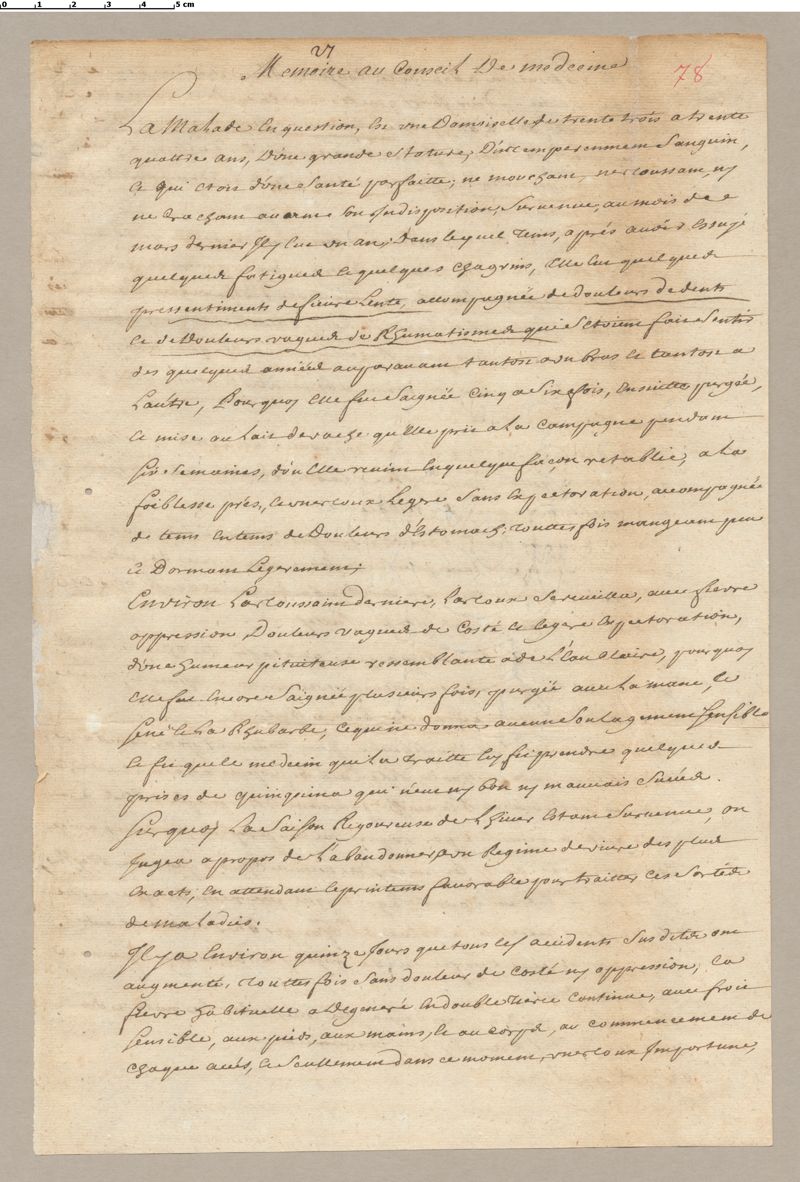 0 1 2 3 4 5 cm
VI
78
Memoire au Conseil De medecine
La Malade En question, Est une Damoiselle de trente trois a trente
quattre ans, D'une grande Stature, D'un temperemment Sanguin,
et qui etoit d'une Santé parfaitte, ne mouchant, ne toussant, ny
ne crachant avant son Indisposition, Survenue, au mois de
mars dernier Il y Eut un an; dans lequel tems, aprés avoir Essuyé
quelques fatigues et quelques chagrins, Elle Eut quelques
pressentiments de fievre Lente, accompagnée de douleurs de dents
et de Douleurs vagues de Rhumatismes qui S'etoient fait Sentir
des quelques années auparavant tantost a un bras et tantost a
Lautre, Pourquoy Elle fut Saignée Cinq a Six fois, Ensuitte purgée,
et mise au Lait de vache qu'Elle prit a La Campagne pendant
Six Semaines, d'ou Elle revint En quelque façon retablie, a La
foiblesse prés, et une toux Legere Sans Expectoration, accompagnée
de tems En tems de Douleurs d'Estomach; touttes fois mangeant peu
et Dormant Legerement;
Environ La toussaint derniere, La toux Se reveilla, avec fievre
oppression, Douleurs vagues de Costé et legere Expectoration,
d'une humeur pituiteuse ressemblante a de L'Eau Claire, pourquoy
Elle fut Encore Saignée plusieurs fois, purgée avec La mane, le
Sené et La Rhubarbe, ce qui ne donna aucun Soulagement Sensible
Ce fit que le medecin qui La traitte Luy fit prendre quelques
prises de quinquina qui n'eut ny bon ny mauvais Succés.
Surquoy La Saison Rigoureuse de L'hiver Etant Survenue, on
Jugea apropos de L'abandonner a un Regime de vivre des plus
Exacts, En attendant le printems favorable pour traitter ces Sortes
de maladies.
Il y a Environ quinze Jours que tous les accidents Susdits ont
augmenté, touttes fois Sans douleur de costé ny oppression, La
fievre habituelle a Degeneré En double tierce Continue, avec froid
Sensible, aux pieds, aux mains, et au corps, au commencement de
chaque accés, et Seullement dans ce moment, une toux Importune,